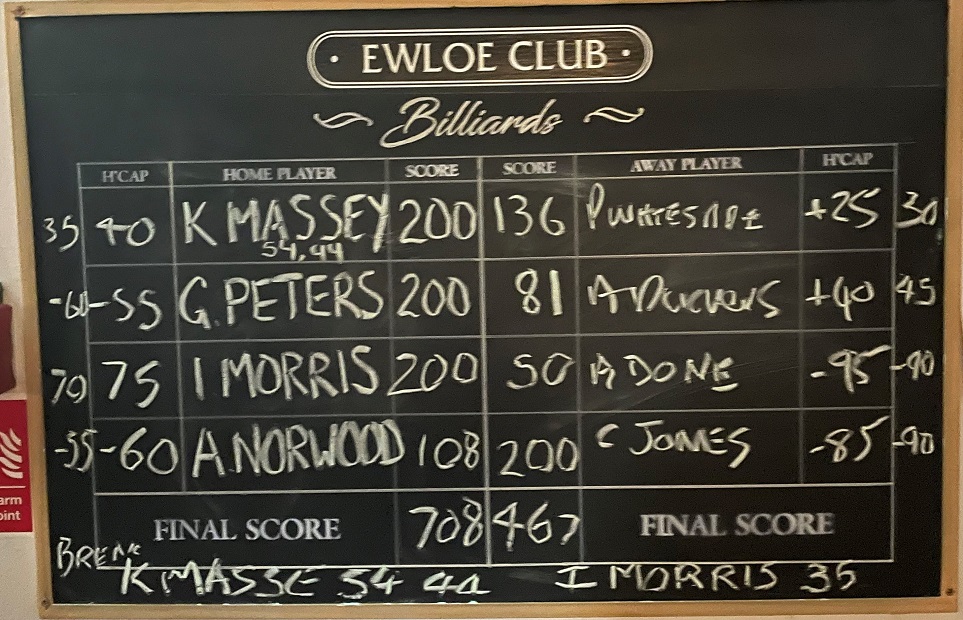 · EWLOE CLUB ·
Billiards
H'CAP HOME PLAYER SCORE SCORE AWAY PLAYER H'CAP
35 40 K MASSEY 200 136 P WHITESIDE +25 30
54,44
-60 -55 G. PETERS 200 81 A +40 45
70 75 I MORRIS 200 50 A DONE -95 -90
-55 -60 A. NORWOOD 108 200 C JONES -85 -90
FINAL SCORE 708 467 FINAL SCORE
BREAK
K MASSE 54 44 I MORRIS 35
arm
oint